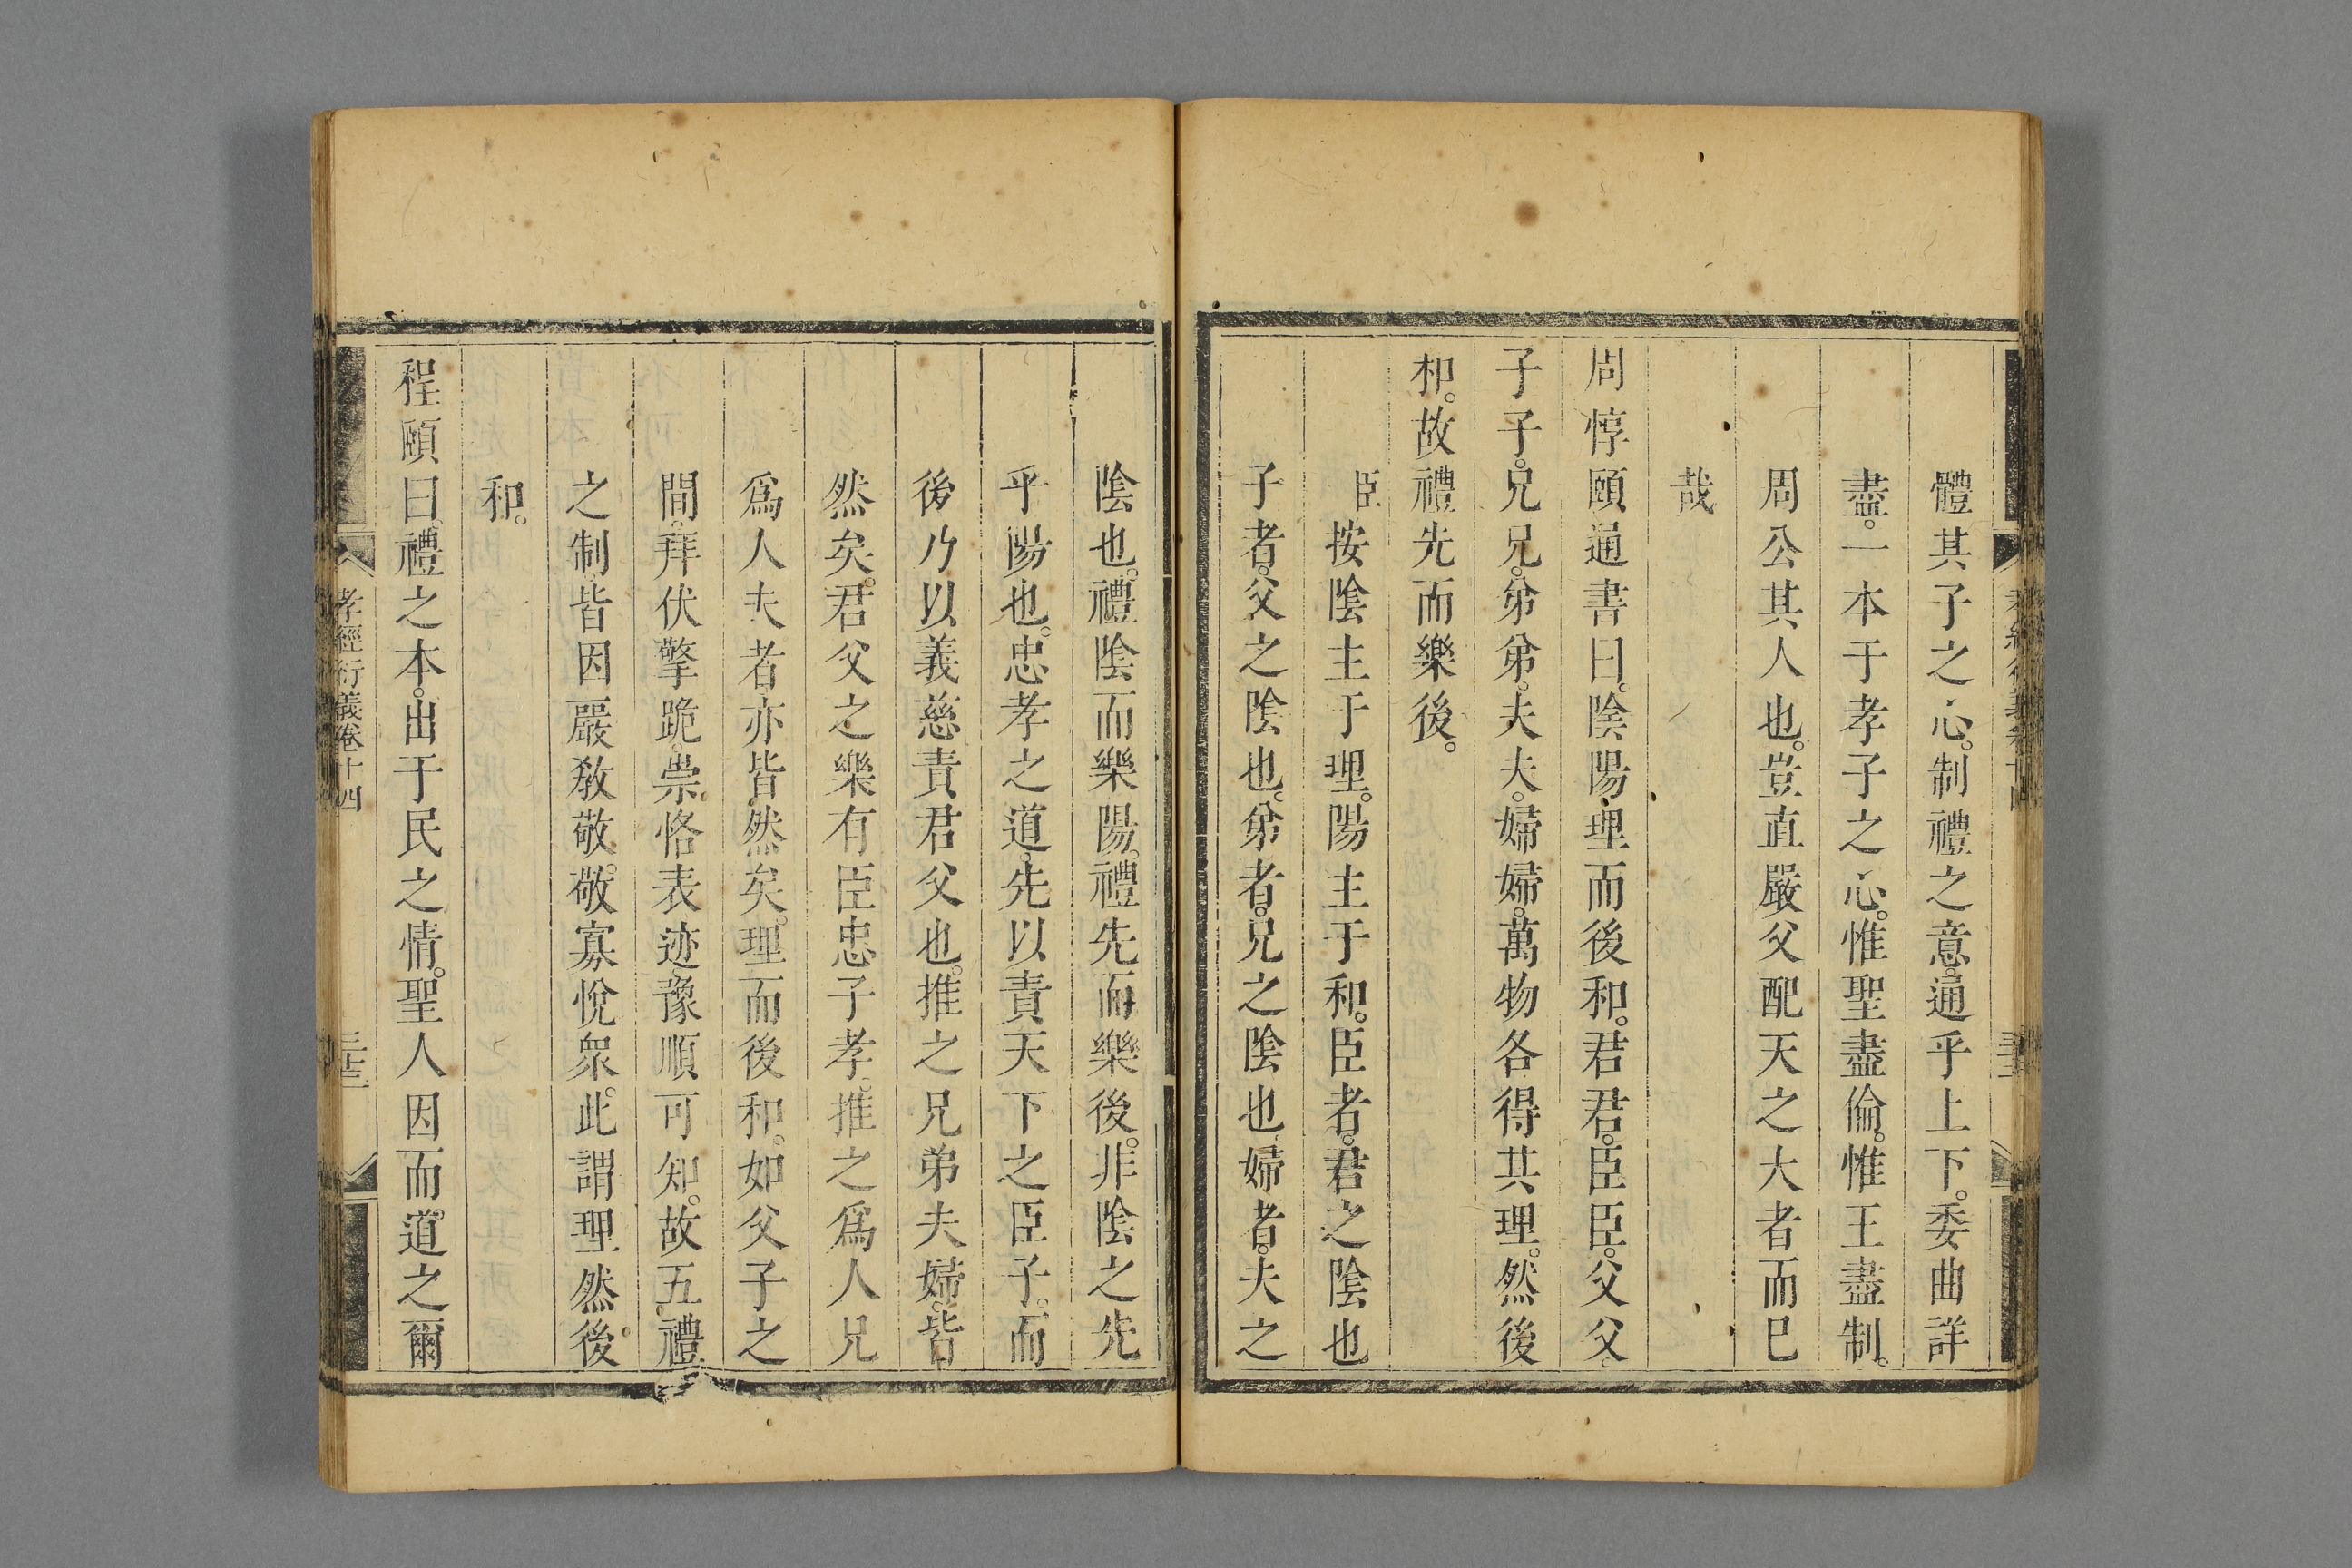 體其子之心。制禮之意。通乎上下。委曲詳
盡。一本于孝子之心。惟聖盡倫。惟王盡制。
周公其人也。豈直嚴父配天之大者而已
哉
周惇頤通書曰。陰陽理而後和。君君。臣臣。父父。
子子。兄兄。弟弟。夫夫。婦婦。萬物各得其理。然後
和。故禮先而樂後。
臣按陰主于理。陽主于和。臣者。君之陰也
子者。父之陰也。弟者。兄之陰也。婦者。夫之
陰也。禮陰而樂陽。禮先而樂後。非陰之先
乎陽也。忠孝之道。先以責天下之臣子。而
後乃以義慈責君父也。推之兄弟夫婦。皆
然矣。君父之樂有臣忠子孝。推之爲人兄
爲人夫者亦皆然矣。理而後和。如父子之
間。拜伏擎跪。祟恪表迹。豫順可知。故五禮
之制。皆因嚴教敬。敬寡悅衆。此謂理然後
和。
程頤曰。禮之本。出于民之情。聖人因而道之爾
孝經衍義卷十四